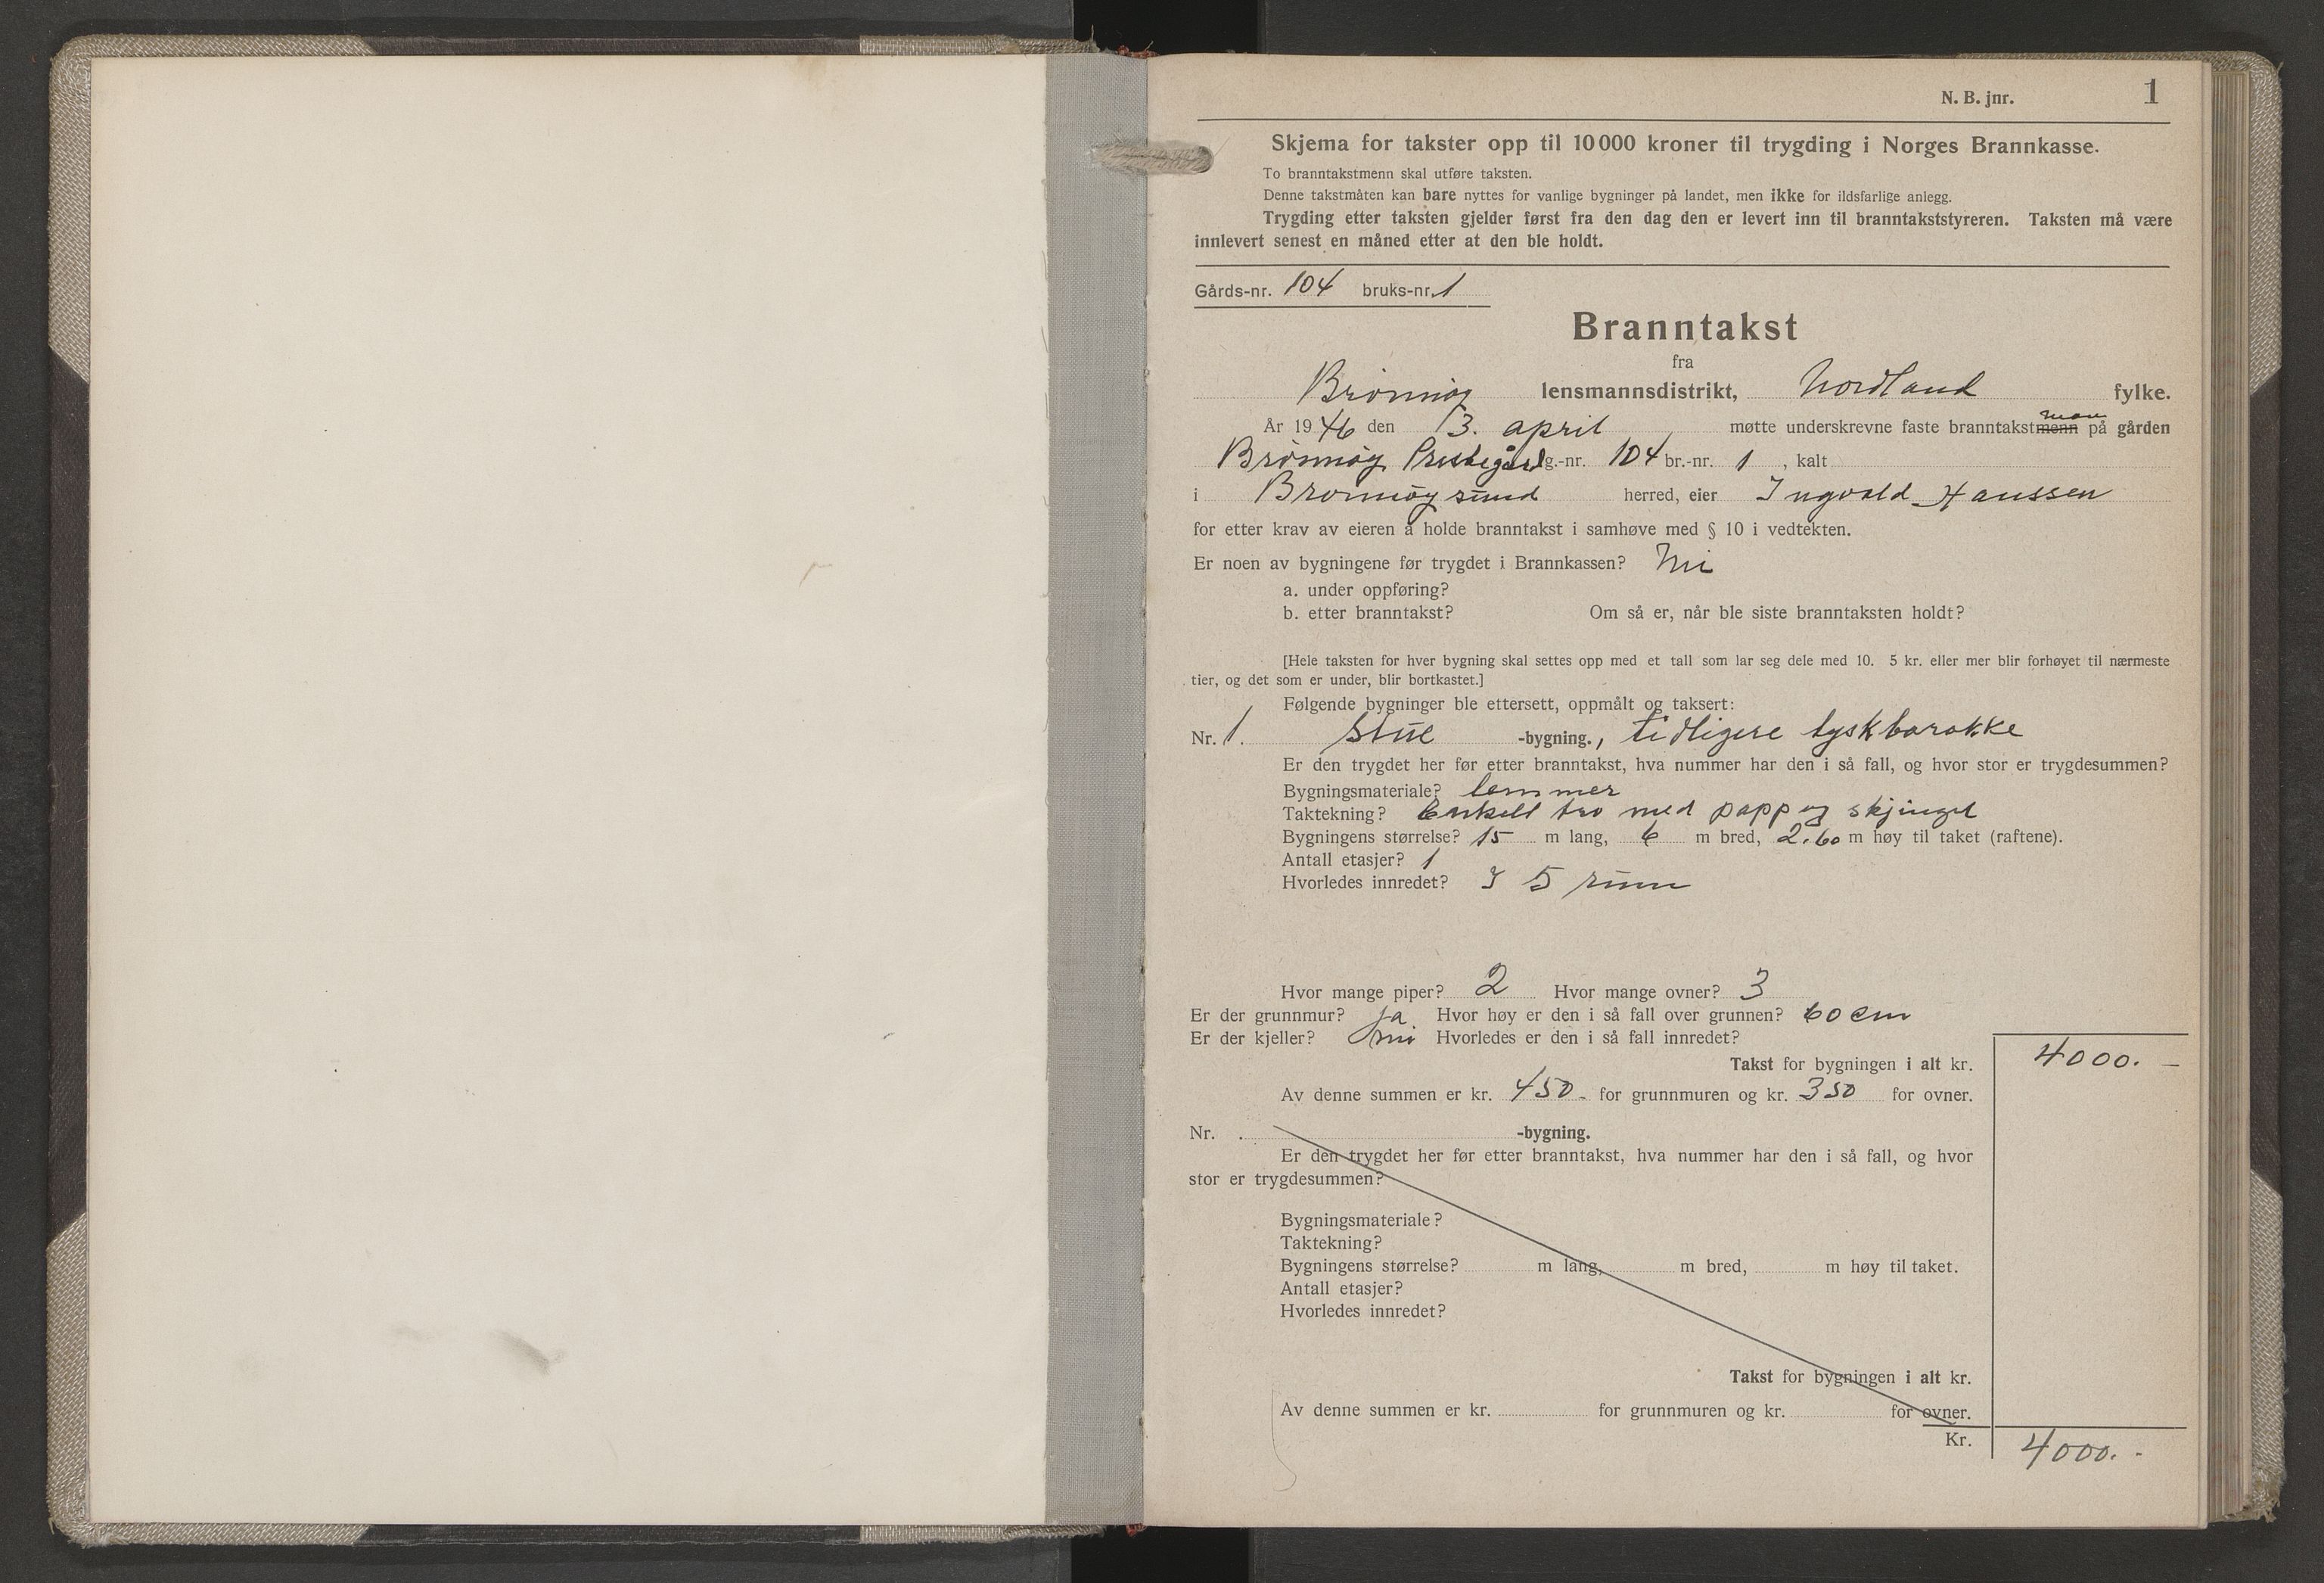 N. B. jnr. 1
Skjema for takster opp til 10 000 kroner til trygding i Norges Brannkasse.
To branntakstmenn skal utføre taksten.
Denne takstmåten kan bare nyttes for vanlige bygninger på landet, men ikke for ildsfarlige anlegg.
Trygding etter taksten gjelder først fra den dag den er levert inn til branntakststyreren. Taksten må være
innlevert senest en måned etter at den ble holdt.
Gårds-nr. 104 bruks-nr. 1
Branntakst
fra
Brønnøy lensmannsdistrikt, Nordland fylke.
man
År 1946 den 13. april møtte underskrevne faste branntakstmenn på gården
Brønnøy Prestegård g.-nr. 104 br.-nr. 1, kalt
i Brønnøysund herred, eier Ingvald Hanssen
for etter krav av eieren å holde branntakst i samhøve med § 10 i vedtekten.
Er noen av bygningene før trygdet i Brannkassen? Nei
a. under oppføring?
b. etter branntakst? Om så er, når ble siste branntaksten holdt?
[Hele taksten for hver bygning skal settes opp med et tall som lar seg dele med 10. 5 kr. eller mer blir forhøyet til nærmeste
tier, og det som er under, blir bortkastet.]
Følgende bygninger ble ettersett, oppmålt og taksert:
Nr. 1. Stue -bygning., tidligere tyskbarakke
Er den trygdet her før etter branntakst, hva nummer har den i så fall, og hvor stor er trygdesummen?
Bygningsmateriale? lemmer
Taktekning? Enkelt tro med papp og skjingel
Bygningens størrelse? 15 m lang, 6 m bred, 2.60 m høy til taket (raftene).
Antall etasjer? 1
Hvorledes innredet? I 5 rum
Hvor mange piper? 2 Hvor mange ovner? 3
Er der grunnmur? Ja Hvor høy er den i så fall over grunnen? 60 cm
Er der kjeller? nei Hvorledes er den i så fall innredet?
Takst for bygningen i alt kr. 4000. -
Av denne summen er kr. 450 - for grunnmuren og kr. 350 for ovner.
Nr. . -bygning.
Er den trygdet her før etter branntakst, hva nummer har den i så fall, og hvor
stor er trygdesummen?
Bygningsmateriale?
Taktekning?
Bygningens størrelse? m lang, m bred, m høy til taket.
Antall etasjer?
Hvorledes innredet?
Takst for bygningen i alt kr.
Av denne summen er kr. for grunnmuren og kr. for ovner.
Kr. 4000. -